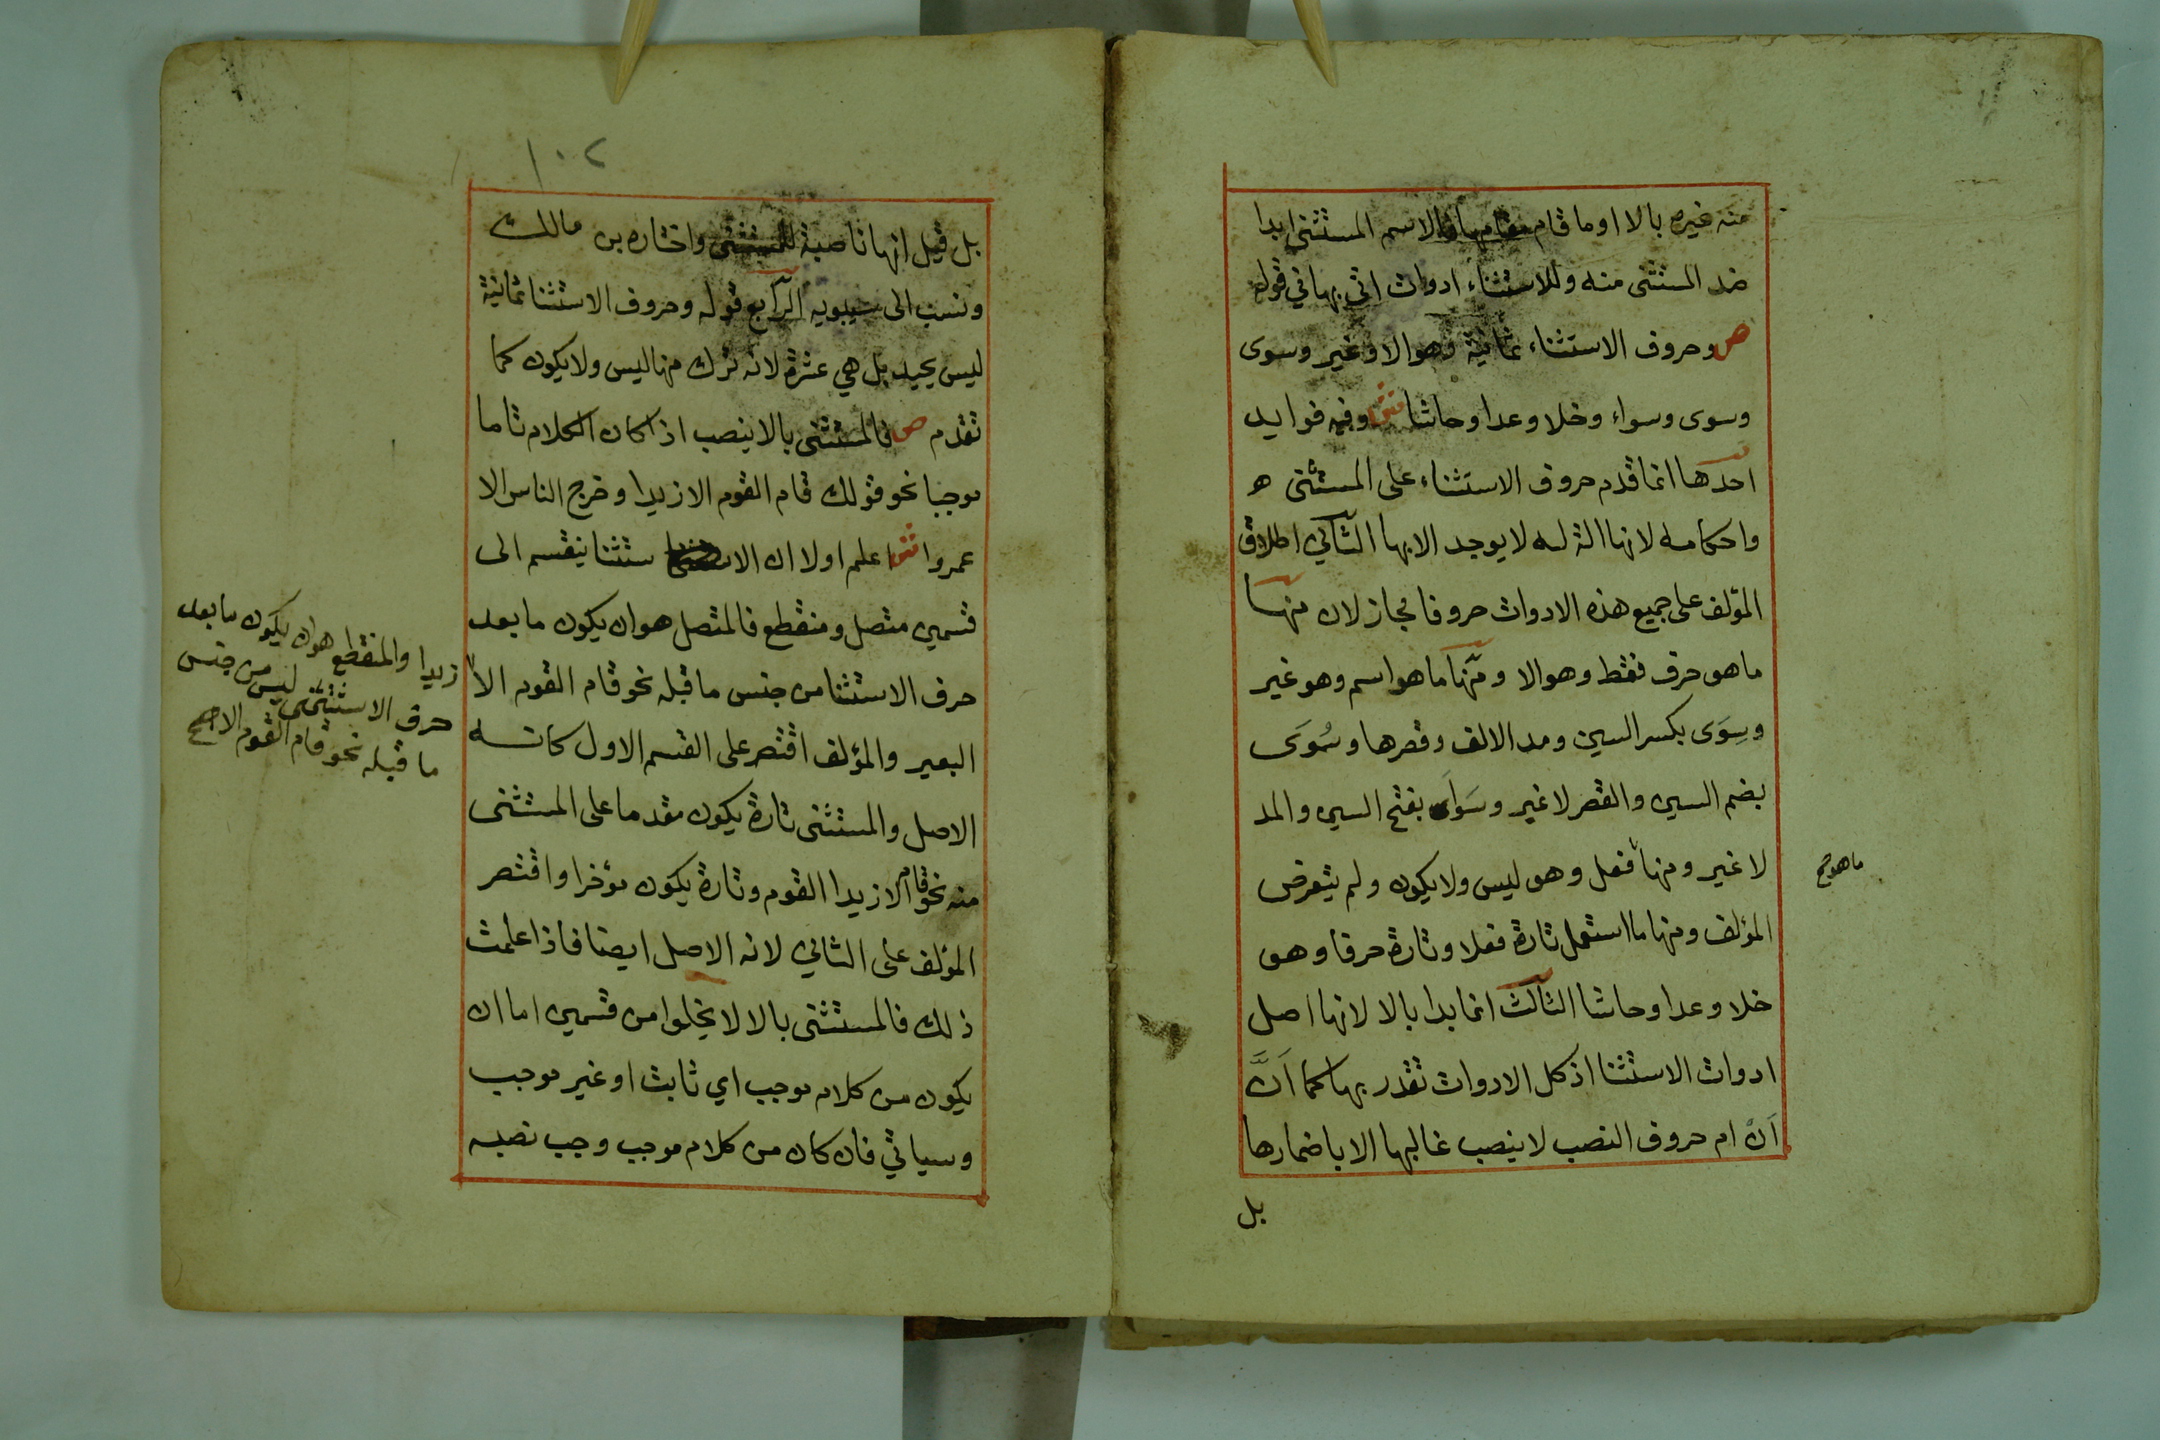 منه غيره بالا او ما قام مقامها فالاسم المستثنى ابدا
ضد المستثنى منه وللاستثناء ادوات اتى بها في قوله
ص وحروف الاستثناء ثمانية وهو الا وغير وسوى
وسوى وسواء وخلا وعدا وحاشا ش وفيه فوايد
احدها انما قدم حروف الاستثناء على المستثنى
واحكامه لانها الة له لا يوجد الا بها الثاني اطلاق
المؤلف على جميع هذه الادوات حروفا مجاز لان منها
ما هو حرف فقط وهو الا ومنها ما هو اسم وهو غير
وسِوَى بكسر السين ومد الالف وقصرها وسُوَى
بضم السين والقصر لا غير وسَواء بفتح السين والمد
لا غير ومنها فعل وهو ليس ولا يكون ولم يتعرض
ما هو صح
المؤلف ومنها ما استعمل تارة فعلا وتارة حرفا وهو
خلا وعدا وحاشا الثالث انما بدا بالا لانها اصل
ادوات الاستثنا اذ كل الادوات تقدر بها كما اَنَّ
اَنْ ام حروف النصب لا ينصب غالبها الا باضمارها
بل
١٠٢
بل قيل انها ناصبة للمستثنى واختاره بن مالك
ونسب الى سيبويه الرابع قوله وحروف الاستثنا ثمانية
ليس بجيد بل هي عشرة لانه ترك منها ليس ولا يكون كما
تقدم ص فالمستثنى بالا ينصب اذا كان الكلام تاما
موجبا نحو قولك قام القوم الا زيدا وخرج الناس الا
عمروا ش اعلم اولا ان الاستثنا ينقسم الى
قسمين متصل ومنقطع فالمتصل هو ان يكون ما بعد
حرف الاستثنا من جنس ما قبله نحو قام القوم الا
زيدا والمنقطع هو ان يكون ما بعد
حرف الاستثنى ليس من جنس
ما قبله نحو قام القوم الا صح
البعير والمؤلف اقتصر على القسم الاول كانه
الاصل والمستثنى تارة يكون مقدما على المستثنى
منه نحو قام الا زيدا القوم وتارة يكون مؤخرا واقتصر
المؤلف على الثاني لانه الاصل ايضا فاذا علمت
ذلك فالمستثنى بالا لا يخلوا من قسمين اما ان
يكون من كلام موجب اي ثابت او غير موجب
وسياتي فان كان من كلام موجب وجب نصبه